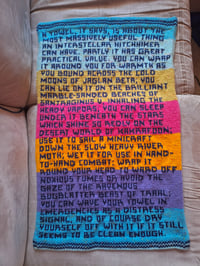 A TOWEL, IT SAYS, IS ABOUT THE
MOST MASSIVELY USEFUL THING
AN INTERSTELLAR HITCHHIKER
CAN HAVE. PARTLY IT HAS GREAT
PRACTICAL VALUE. YOU CAN WRAP
IT AROUND YOU FOR WARMTH AS
YOU BOUND ACROSS THE COLD
MOONS OF JAGLAN BETA; YOU
CAN LIE ON IT ON THE BRILLIANT
MARBLE-SANDED BEACHES OF
SANTRAGINUS V, INHALING THE
HEADY VAPORS; YOU CAN SLEEP
UNDER IT BENEATH THE STARS
WHICH SHINE SO REDLY ON THE
DESERT WORLD OF KAKRAFOON;
USE IT TO SAIL A MINIRAFT
DOWN THE SLOW HEAVY RIVER
MOTH; WET IT FOR USE IN HAND-
TO-HAND COMBAT; WRAP IT
ROUND YOUR HEAD TO WARD OFF
NOXIOUS FUMES OR AVOID THE
GAZE OF THE RAVENOUS
BUGBLATTER BEAST OF TRAAL;
YOU CAN WAVE YOUR TOWEL IN
EMERGENCIES AS A DISTRESS
SIGNAL, AND OF COURSE DRY
YOURSELF OFF WITH IT IF IT STILL
SEEMS TO BE CLEAN ENOUGH.